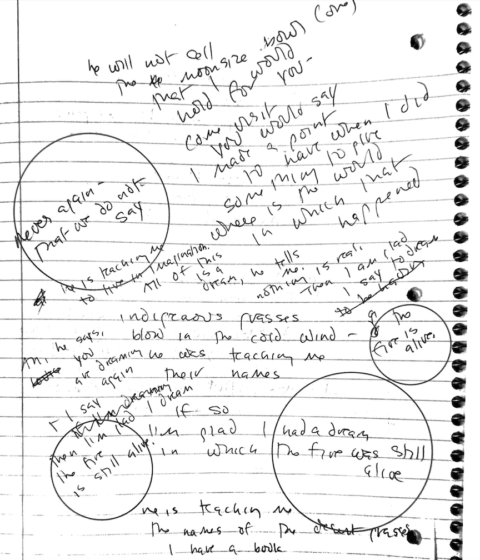 he will not call
the moonsize bowl (one)
that I would
hold for you-
come visit
you would say
I made a point
to have when I did
something to give
where is the world
in which that
happened
never again-
that we do not
say
He is teaching me
to live in imagination.
All of this
is a
dream, he tells
me.
nothing is real.
Then I am glad
I say to dream
the
fire is
alive.
indigenous grasses
blow in the cold wind -
he was teaching me
their names
Ah, he says,
you
are dreaming
again
I say
then I'm glad I dream
the fire
is still alive.
If so
I'm glad I had a dream
in which the fire was still
alive
He is teaching me
the names of the desert grasses
I have a book